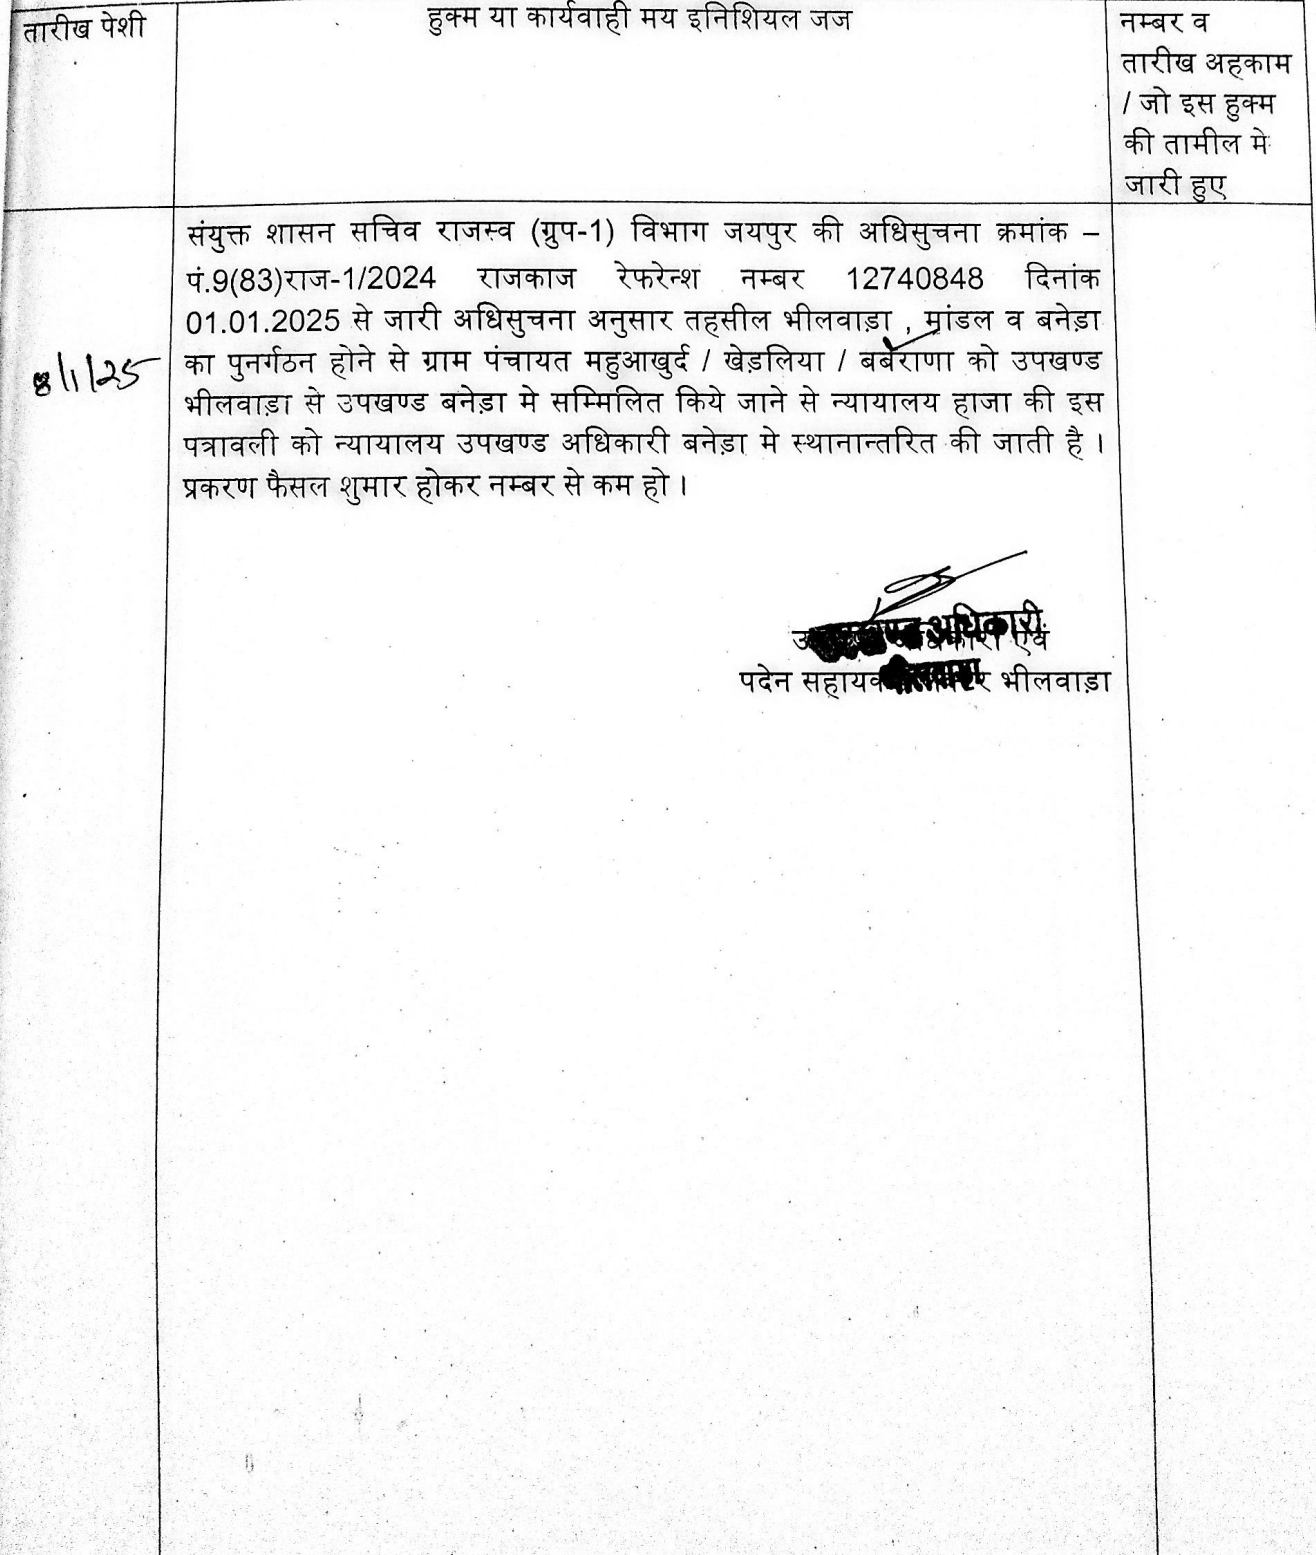 तारीख पेशी
हुक्म या कार्यवाही मय इनिशियल जज
नम्बर व
तारीख अहकाम
/ जो इस हुक्म
की तामील मे
जारी हुए
8/1/25
संयुक्त शासन सचिव राजस्व (ग्रुप-1) विभाग जयपुर की अधिसुचना क्रमांक –
पं.9(83)राज-1/2024 राजकाज रेफरेन्श नम्बर 12740848 दिनांक
01.01.2025 से जारी अधिसुचना अनुसार तहसील भीलवाड़ा , मांडल व बनेड़ा
का पुनर्गठन होने से ग्राम पंचायत महुआखुर्द / खेड़लिया / बर्बेराणा को उपखण्ड
भीलवाड़ा से उपखण्ड बनेड़ा मे सम्मिलित किये जाने से न्यायालय हाजा की इस
पत्रावली को न्यायालय उपखण्ड अधिकारी बनेड़ा मे स्थानान्तरित की जाती है ।
प्रकरण फैसल शुमार होकर नम्बर से कम हो ।
अधिकारी
एवं
पदेन सहायक भीलवाड़ा